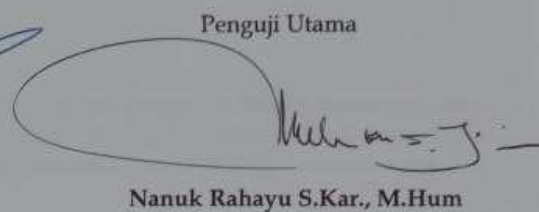 Penguji Utama
Nanuk Rahayu S.Kar., M.Hum